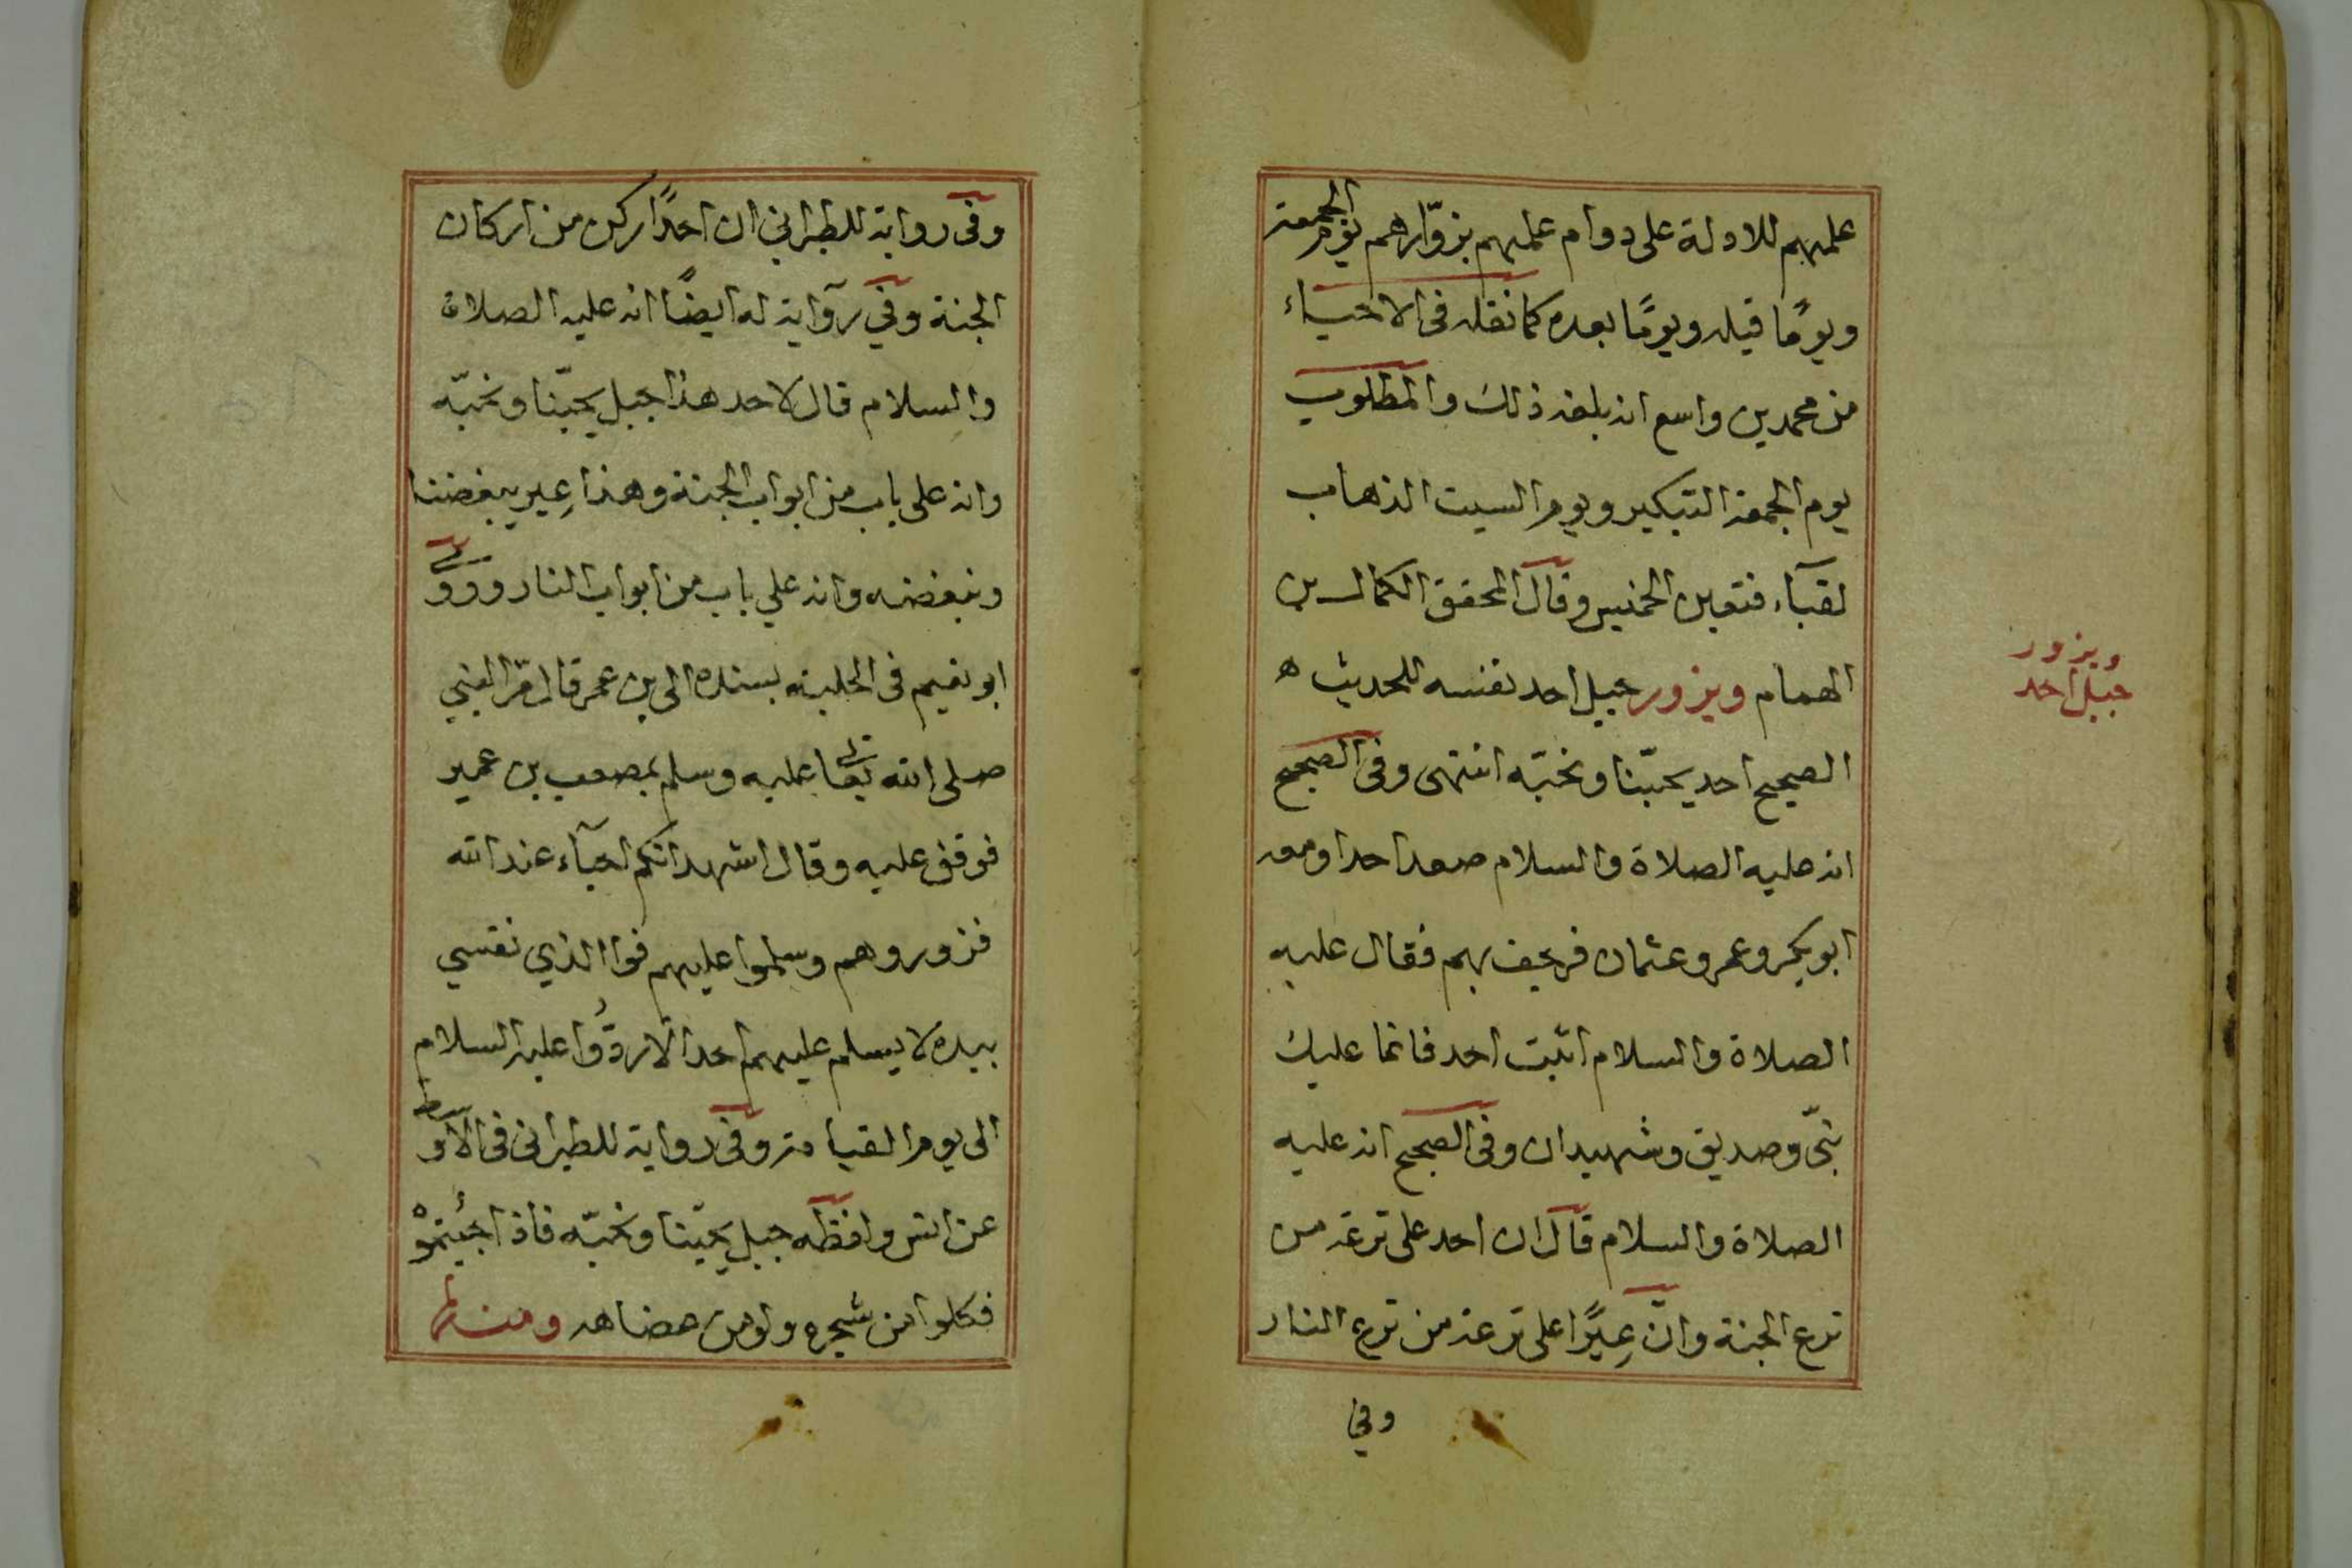 علمهم للادلة على دوام علمهم بزوّارهم يوم الجمعة
ويومًا قبله ويومًا بعده كما نقله فى الاحياء
من محمد بن واسع انه بلغه ذلك والمطلوب
يوم الجمعة التبكير ويوم السبت الذهاب
لقبآء فتعين الخميس وقال المحقق الكمال بن
الهمام ويزور جبل احد نفسه للحديث ه
الصحيح احد يحبّنا ونحبّه انتهى وفى الصحيح
انه عليه الصلاة والسلام صعد احدا ومعه
ابو بكر وعمر وعثمان فرجف بهم فقال عليه
الصلاة والسلام اثبت احد فانما عليك
نبىّ وصديق وشهيدان وفى الصحيح انه عليه
الصلاة والسلام قال ان احد على ترعة من
ترع الجنة وانّ عِيرًا على ترعة من ترع النار
وفي
ويزور
جبل احد
وفى رواية للطبرانى ان احدًا ركن من اركان
الجنة وفي رواية له ايضًا انه عليه الصلاة
والسلام قال لاحد هذا جبل يحبّنا ونحبّه
وانه على باب من ابواب الجنة وهذا عِير يبغضنا
ونبغضه وانه على باب من ابواب النار وروى
ابو نعيم فى الحلية بسنده الى بن عمر قال مرّ النبي
صلى الله تعالى عليه وسلم بمصعب بن عمير
فوقف عليه وقال اشهد انكم احيآء عند الله
فزوروهم وسلموا عليهم فوا الذي نفسي
بيده لا يسلم عليهم احد الا ردُّوا عليه السلام
الى يوم القيامة وفى رواية للطبرانى فى الاوسط
عن انس وافظه جبل يحبّنا ونحبّه فاذا جئتموْه
فكلوا من شجره ولو من عضاهه ومنها